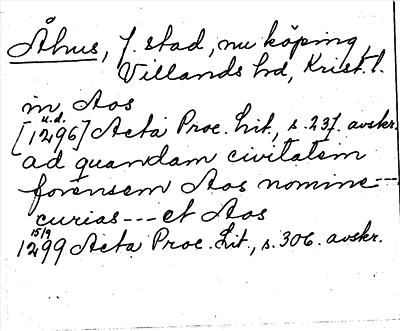 Åhus, f. stad, nu köping
Villands hd, Krist. l.
in Aos
[u.d. 1296] Acta Proc. Lit., s. 237. avskr.
ad quandam civitatem
forensem Aos nomine ---
curias --- et Aos
15/9 1299 Acta Proc. Lit., s. 306. avskr.